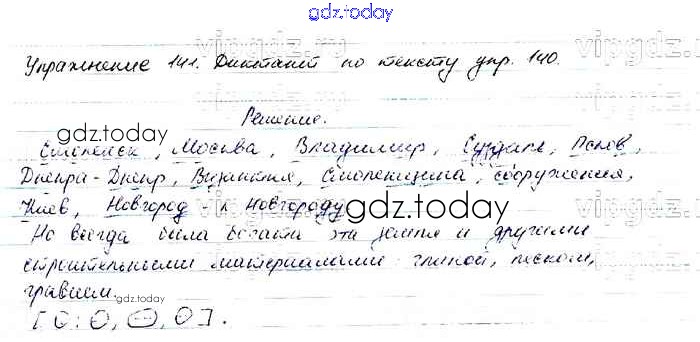 gdz.today
Упражнение 141. Диктант по тексту упр. 140.
vipgdz.ru
Решение.
gdz.today
Смоленск, Москва, Владимир, Суздаль, Псков,
Днепра - Днепр, Византия, Смоленщина, сооружения,
Киев, Новгород к Новгороду
gdz.today
vipgdz.ru
Но всегда была богата эта земля и другими
строительными материалами: глиной, песком,
гравием.
gdz.today
[О: О, О, О].